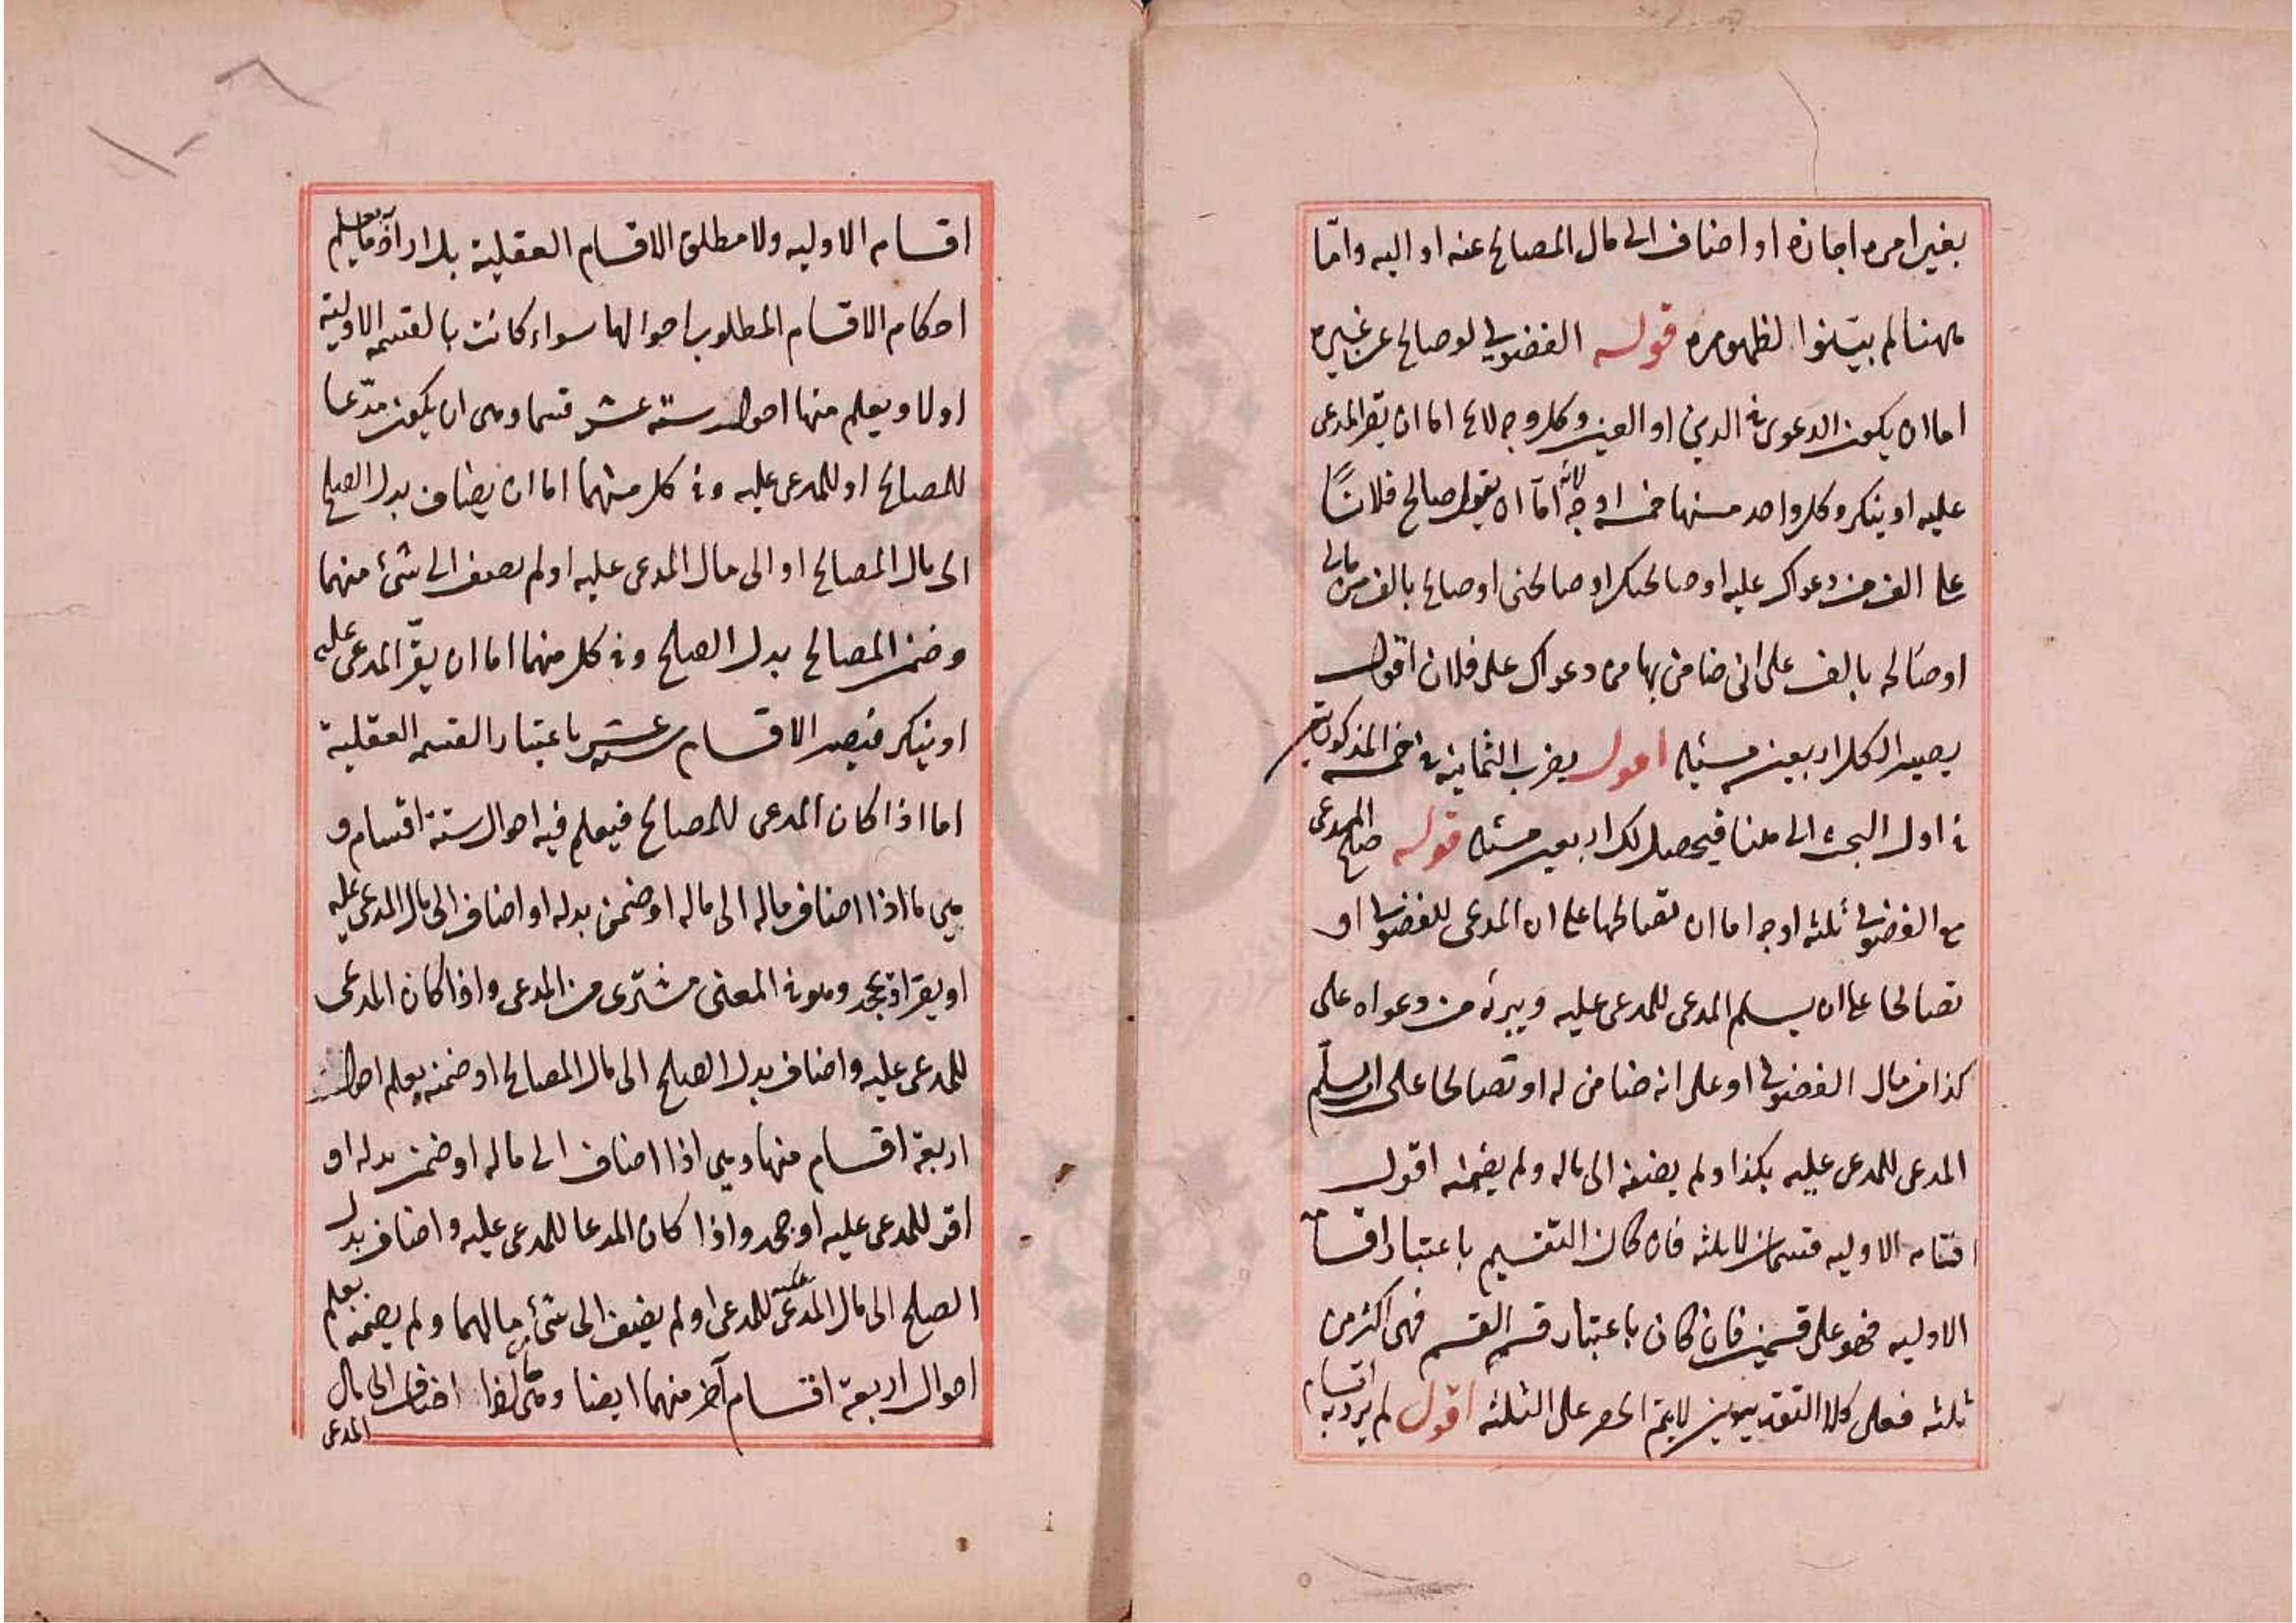 بغير امره اجازه او اضاف الى مال المصالح عنه او اليه وامّا
ههنا لم يبيّنوا لظهوره قوله الفضولى لو صالح عن غيره
اما ان يكون الدعوى فى الدين او العين وكل وجه لا يخ اما ان يقر المدعى
عليه او ينكر وكل واحد منها خمسة اوجه لانه امّا ان يقول صالح فلانًا
على الف من دعواك عليه او صالحتك او صالحنى او صالح بالف من مالى
او صالحه بالف على انى ضامن بها من دعواك على فلان اقول
يصير الكل اربعين مسئله اقول يضرب الثمانية فى الخمسه المذكورة
فى اول البحث الى هنا فيحصل لك اربعين مسئله قوله صالح المدعى
مع الفضولى ثلثه اوجه اما ان تصالحها على ان المدعى للفضولى او
تصالحا على ان يسلم المدعى للمدعى عليه ويبرئه من دعواه على
كذا من مال الفضولى او على انه ضامن له او تصالحا على ان يسلّم
المدعى للمدعى عليه بكذا ولم يضفه الى ماله ولم يضمنه اقول
اقسامه الاوليه قسمان لا ثلثه فان كان التقسيم باعتبار اقسامه
الاوليه فهو على قسمين فان كان باعتبار قسم القسم فهى اكثر من
ثلثه فعلى كلا التقديرين لا يتم الحصر على الثلثه اقول لم يرد به اقسام
اقسامه الاوليه ولا مطلق الاقسام العقلية بل اراد ما يعلم
احكام الاقسام المطلوب احوالها سواء كانت بالقسمه الاولية
اولا ويعلم منها احوال ستة عشر قسما وهى ان يكون مدّعا
للمصالح او للمدعى عليه وفى كل منهما اما ان يضاف بدل الصلح
الى مال المصالح او الى مال المدعى عليه او لم يضف الى شئ منهما
وضمن المصالح بدل الصلح وفى كل منهما اما ان يقرّ المدعى عليه
او ينكر فيصير الاقسام ستة عشر باعتبار القسمه العقلية
اما اذا كان المدعى للمصالح فيعلم فيه احوال ستة اقسام و
هى ما اذا اضاف ماله الى ماله او ضمن بدله او اضاف الى مال المدعى عليه
او يقر او يجحد وهو فى المعنى مشترى من المدعى واذا كان المدعى
للمدعى عليه واضاف بدل الصلح الى مال المصالح او ضمنه يعلم احوال
اربعة اقسام منها وهى اذا اضاف الى ماله او ضمن بدله او
اقر للمدعى عليه او جحد واذا كان المدعا للمدعى عليه واضاف بدل
الصلح الى مال المدعى عليه للمدعى او لم يضف الى شئ من مالهما ولم يضمنه يعلم
احوال اربعة اقسام آخر منهما ايضا وهى ما اذا اضاف الى مال
المدعى